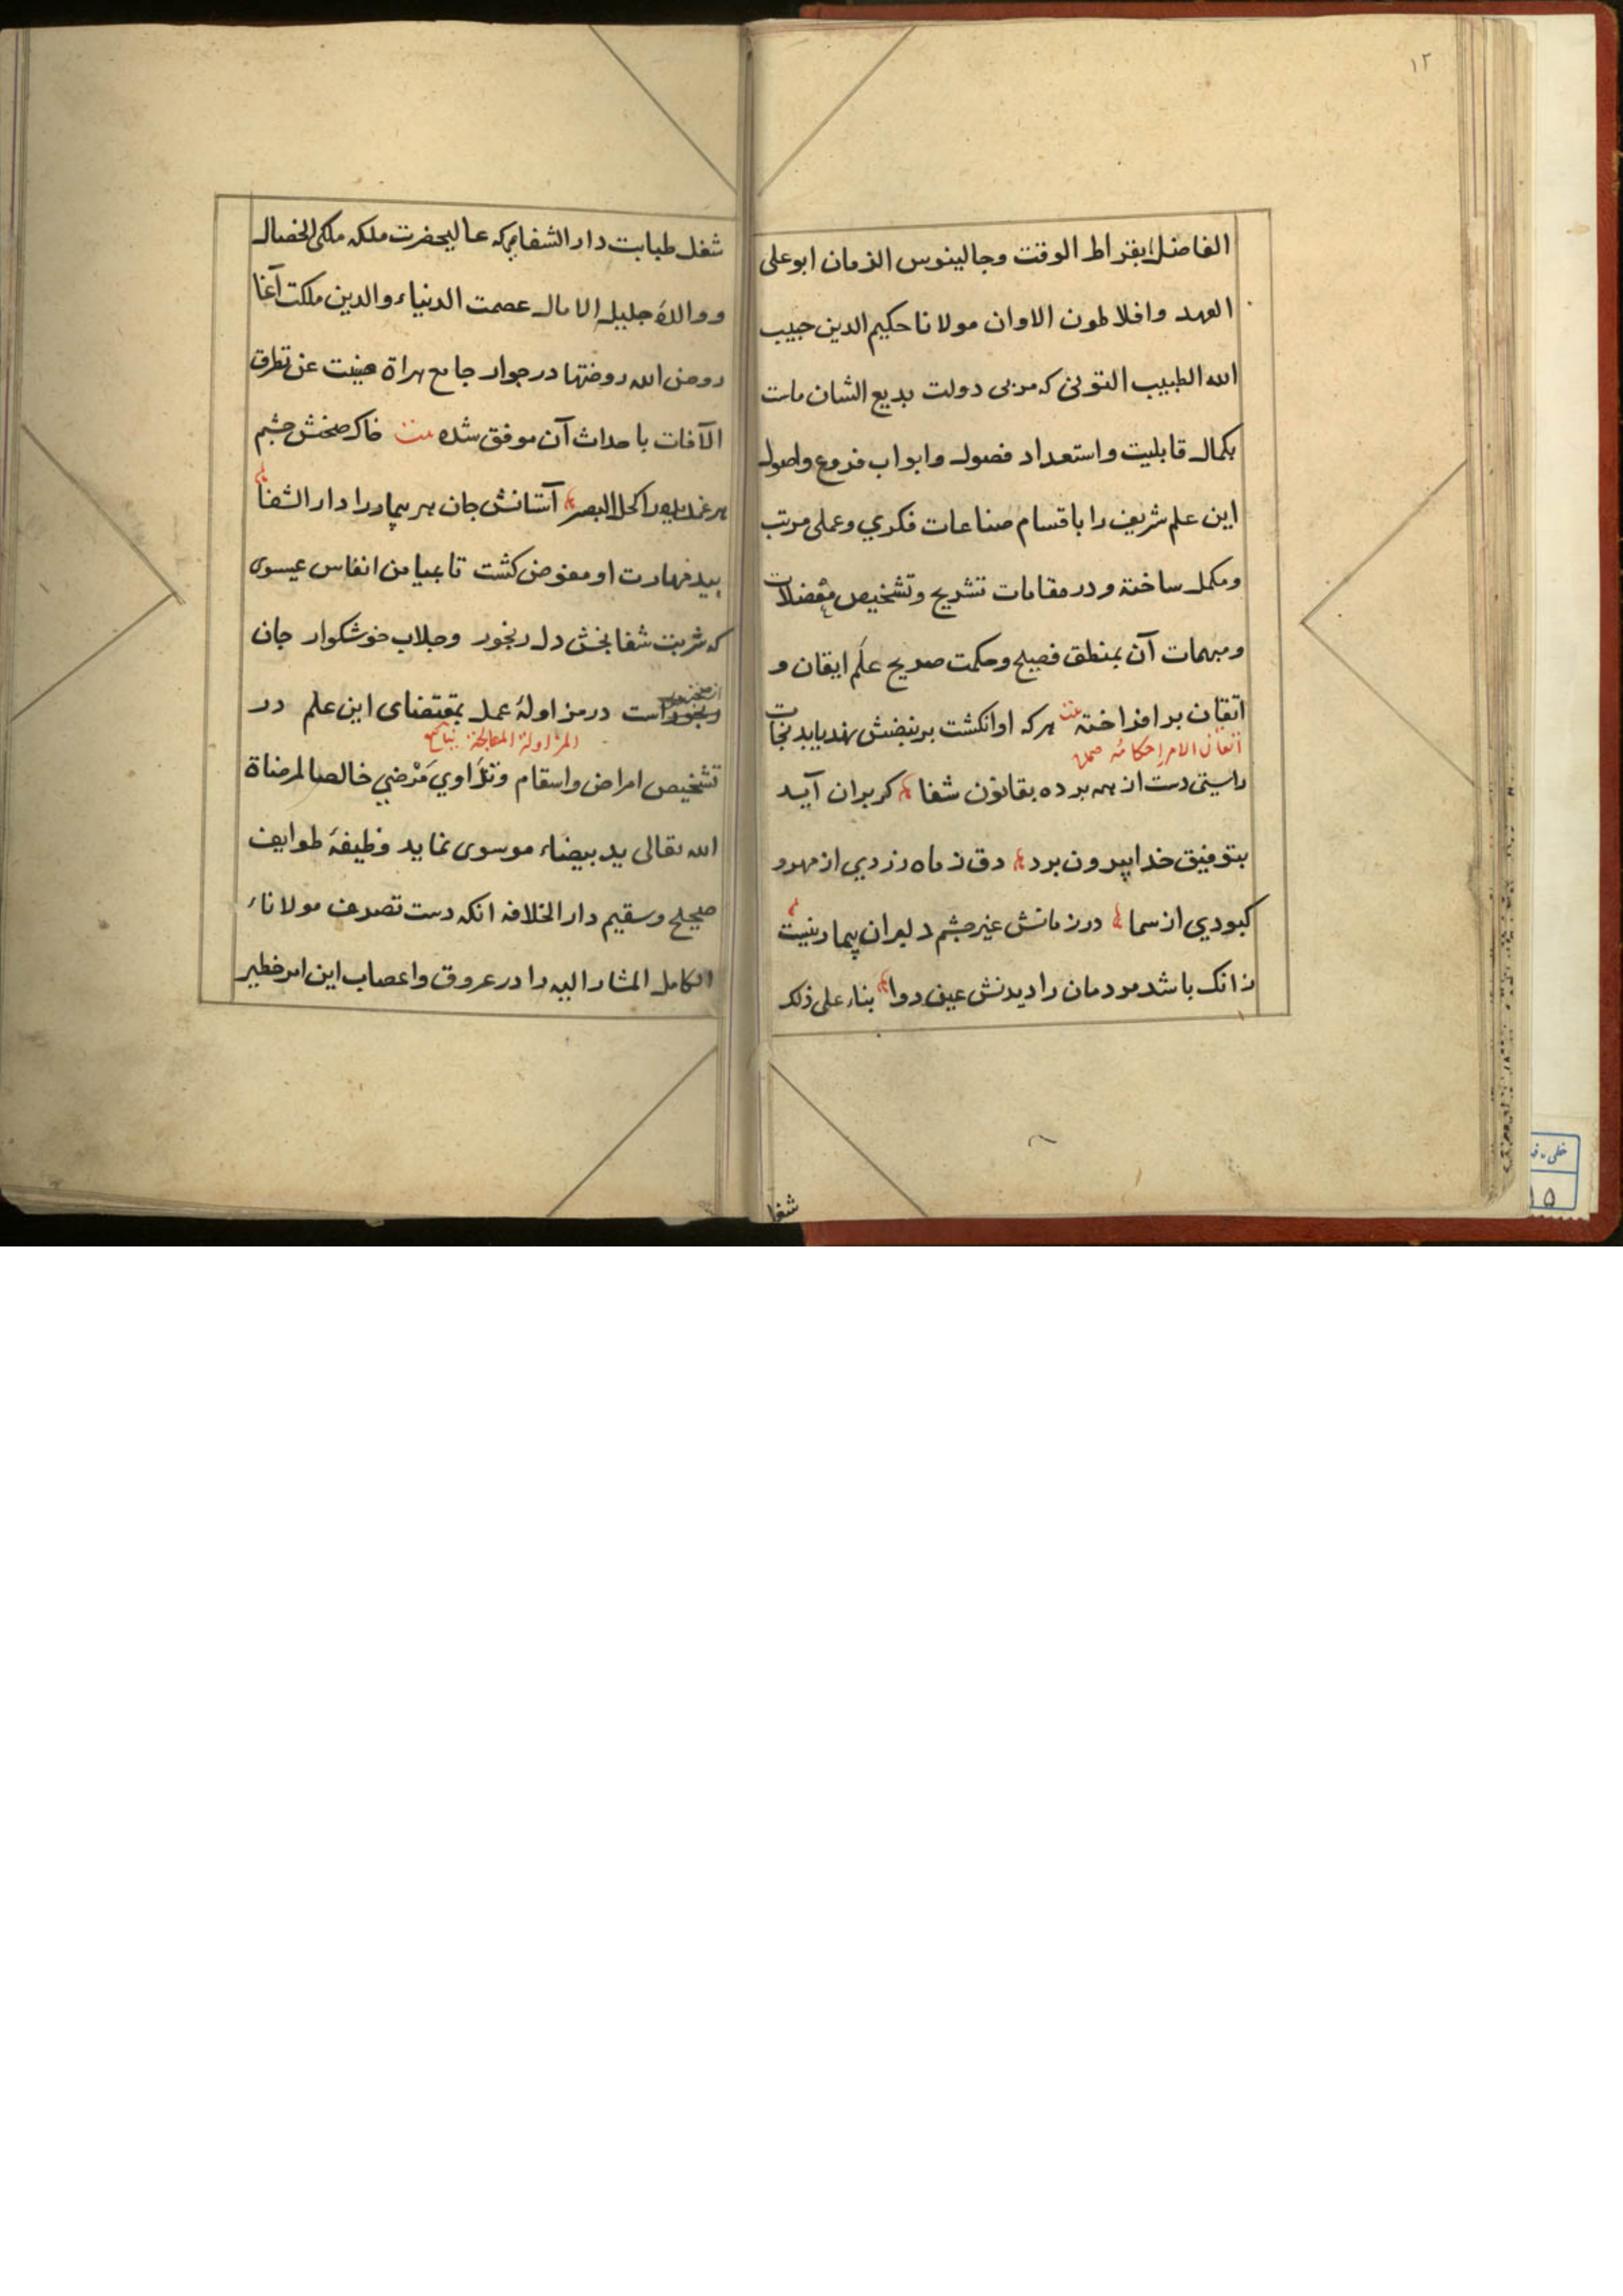 ١٢
الفاضل بقراط الوقت وجالينوس الزمان ابوعلى
العهد وافلاطون الاوان مولانا حكيم الدين حبيب
الله الطبيب التونى كه مربى دولت بديع الشان ماست
بكمال قابليت واستعداد فصول وابواب فروع واصول
اين علم شريف را باقسام صناعات فكري وعملى مرتب
ومكمل ساخته ودر مقامات تشريح وتشخيص معضلات
ومبهمات آن بمنطق فصيح وحكمت صريح علم ايقان و
اتقان برافراخته هركه اوانكشت برنبضش نهد يابد نجات
اتقان الامر احكامه
راستى دست از همه برده بقانون شفا كر بران آيد
بتوفيق خدا بيرون برد دق ز ماه زردي از مهر و
كبودي از سما در زمانش غير چشم دلبران بيمار نيست
زانك باشد مردمان را ديدنش عين دوا بناء على ذلك
شغل
شغل طبابت دار الشفا كه عاليحضرت ملكه ملكى الخصال
ووالدۀ جليلة الامال عصمت الدنياء والدين ملكت آغا
روض الله روضتها در جوار جامع هراة صينت عن تطرق
الآفات باحداث آن موفق شده خاك صحنش چشم
آستانش جان هر بيمار را دار الشفا
بيد مهارت او مفوض كشت تا بميامن انفاس عيسوى
كه شربت شفابخش دل رنجور وجلاب خوشكوار جان
است در مزاولۀ عمل بمقتضاى اين علم در
المزاولة المعالجة
تشخيص امراض واسقام وتداوي مرضي خالصا لمرضاة
الله تعالى يد بيضاء موسوى نمايد وظيفۀ طوايف
صحيح وسقيم دار الخلافه انكه دست تصرف مولاناء
الكامل المشار اليه را در عروق واعصاب اين امر خطير
خطى